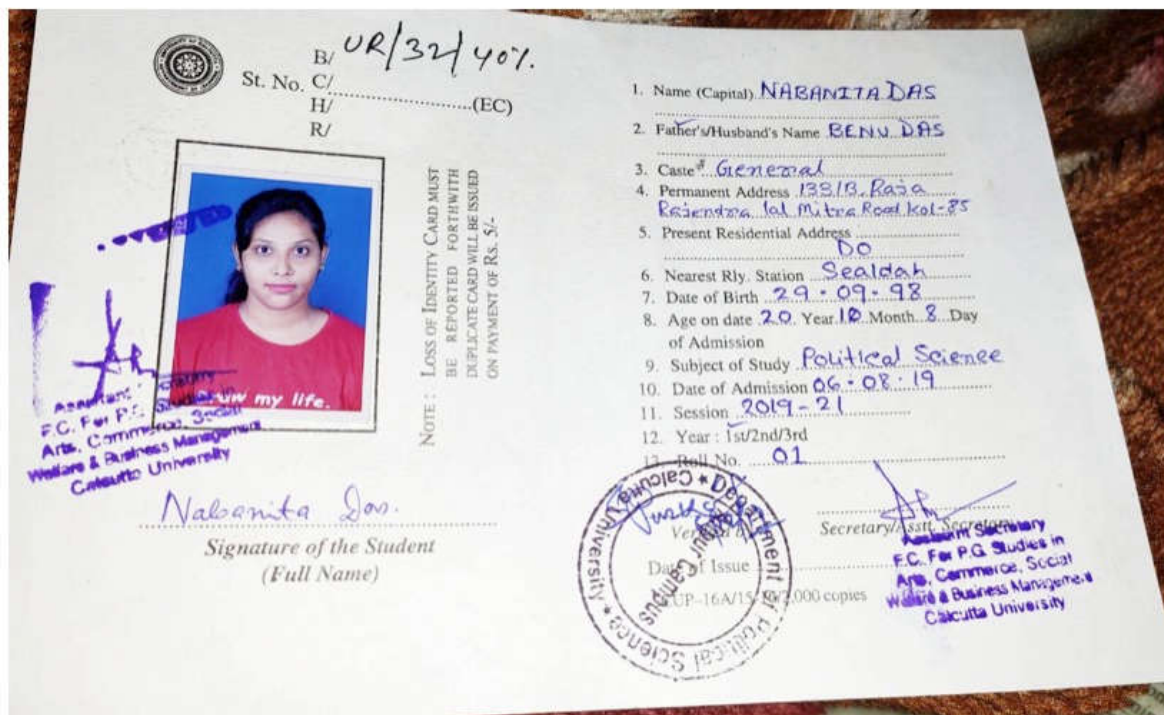 B/ UR/32/40%.
St. No. C/ (EC)
H/
R/
NOTE : LOSS OF IDENTITY CARD MUST
BE REPORTED FORTHWITH
DUPLICATE CARD WILL BE ISSUED
ON PAYMENT OF RS. 5/-
my life.
F.C. For P.G. Studies in
Arts, Commerce, Social
Welfare & Business Management
Calcutta University
Nabanita Das.
Signature of the Student
(Full Name)
1. Name (Capital) NABANITA DAS
2. Father's/Husband's Name BENU DAS
3. Caste General
4. Permanent Address 133/B, Raja
Rajendra lal Mitra Road Kol-85
5. Present Residential Address
DO
6. Nearest Rly. Station Sealdah
7. Date of Birth 29-09-98
8. Age on date 20 Year 10 Month 8 Day
of Admission
9. Subject of Study Political Science
10. Date of Admission 06-08-19
11. Session 2019-21
12. Year : 1st/2nd/3rd
13. Roll No. 01
Verified by
Secretary/Asstt. Secretary
Date of Issue
2,000 copies
Department of Political Science * Calcutta University *
Campus
Assistant Secretary
F.C. For P.G. Studies in
Arts, Commerce, Social
Welfare & Business Management
Calcutta University